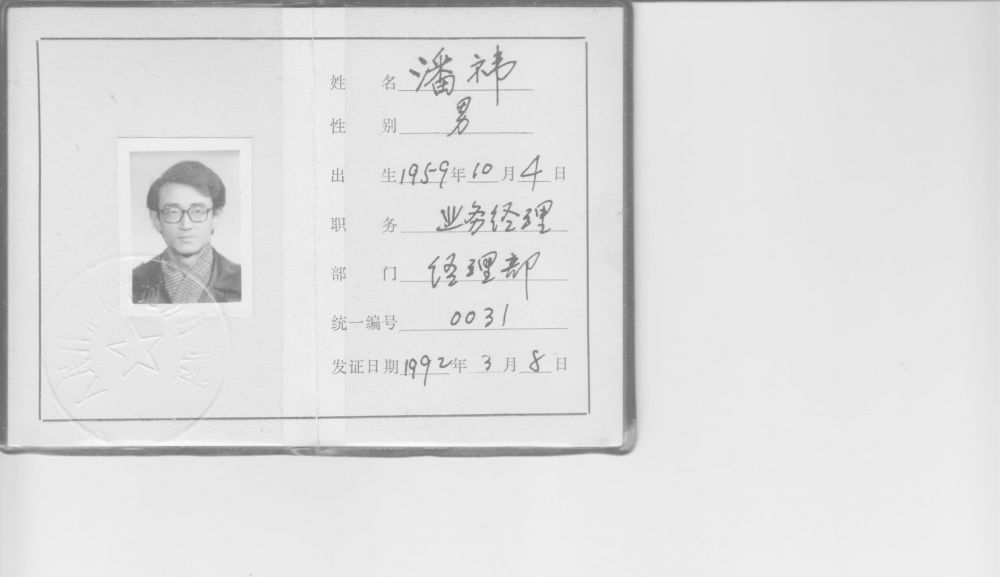 姓 名 潘祎
性 别 男
出 生 1959年 10 月 4 日
职 务 业务经理
部 门 经理部
统一编号 0031
发证日期 1992年 3 月 8 日